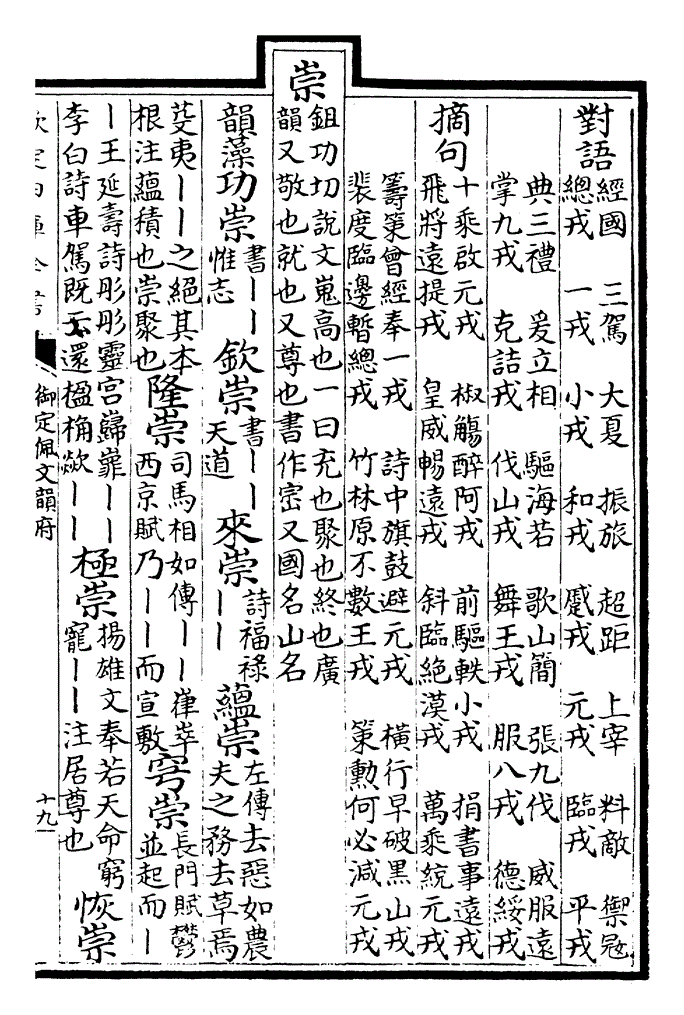 崇
對語
經國 三駕 大夏 振旅 超距 上宰 料敵 禦寇
總戎 一戎 小戎 和戎 蹙戎 元戎 臨戎 平戎
典三禮 爰立相 驅海若 歌山簡 張九伐 威服遠
掌九戎 克詰戎 伐山戎 舞王戎 服八戎 德綏戎
摘句
十乘啟元戎 椒觴醉阿戎 前驅軼小戎 捐書事遠戎
飛將遠提戎 皇威暢遠戎 斜臨絕漠戎 萬乘統元戎
籌策曾經奉一戎 詩中旗鼓避元戎 橫行早破黑山戎
裴度臨邊暫總戎 竹林原不數王戎 策勲何必減元戎
鉏功切說文嵬高也一曰充也聚也終也廣
韻又敬也就也又尊也書作崈又國名山名
韻藻功崇
書丨丨
惟志
欽崇
書丨丨
天道
來崇
詩福祿
丨丨
蘊崇
左傳去惡如農
夫之務去草焉
芟夷丨丨之絕其本
根注蘊積也崇聚也
隆崇
司馬相如傳丨丨嵂崒
西京賦乃丨丨而宣敷
穹崇
長門賦鬱
並起而丨
丨王延壽詩彤彤靈宮巋嶵丨丨
李白詩車駕既云還楹桷歘丨丨
極崇
揚雄文奉若天命窮
寵丨丨注居尊也
恢崇
欽定四庫全書
御定佩文韻府
十九